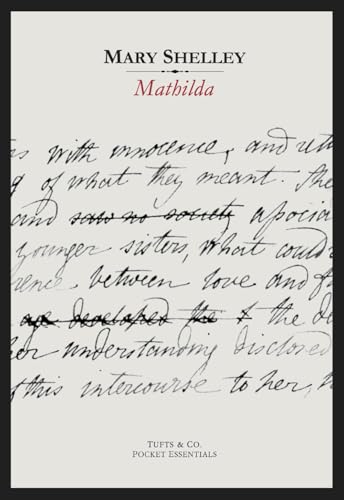 MARY SHELLEY
Mathilda
with innocence, and
of what they meant. The
and saw no society associa
younger sisters, what could
rence between love and
age developed the & the de
her understanding disclosed
this intercourse to her,
TUFTS & CO.
POCKET ESSENTIALS